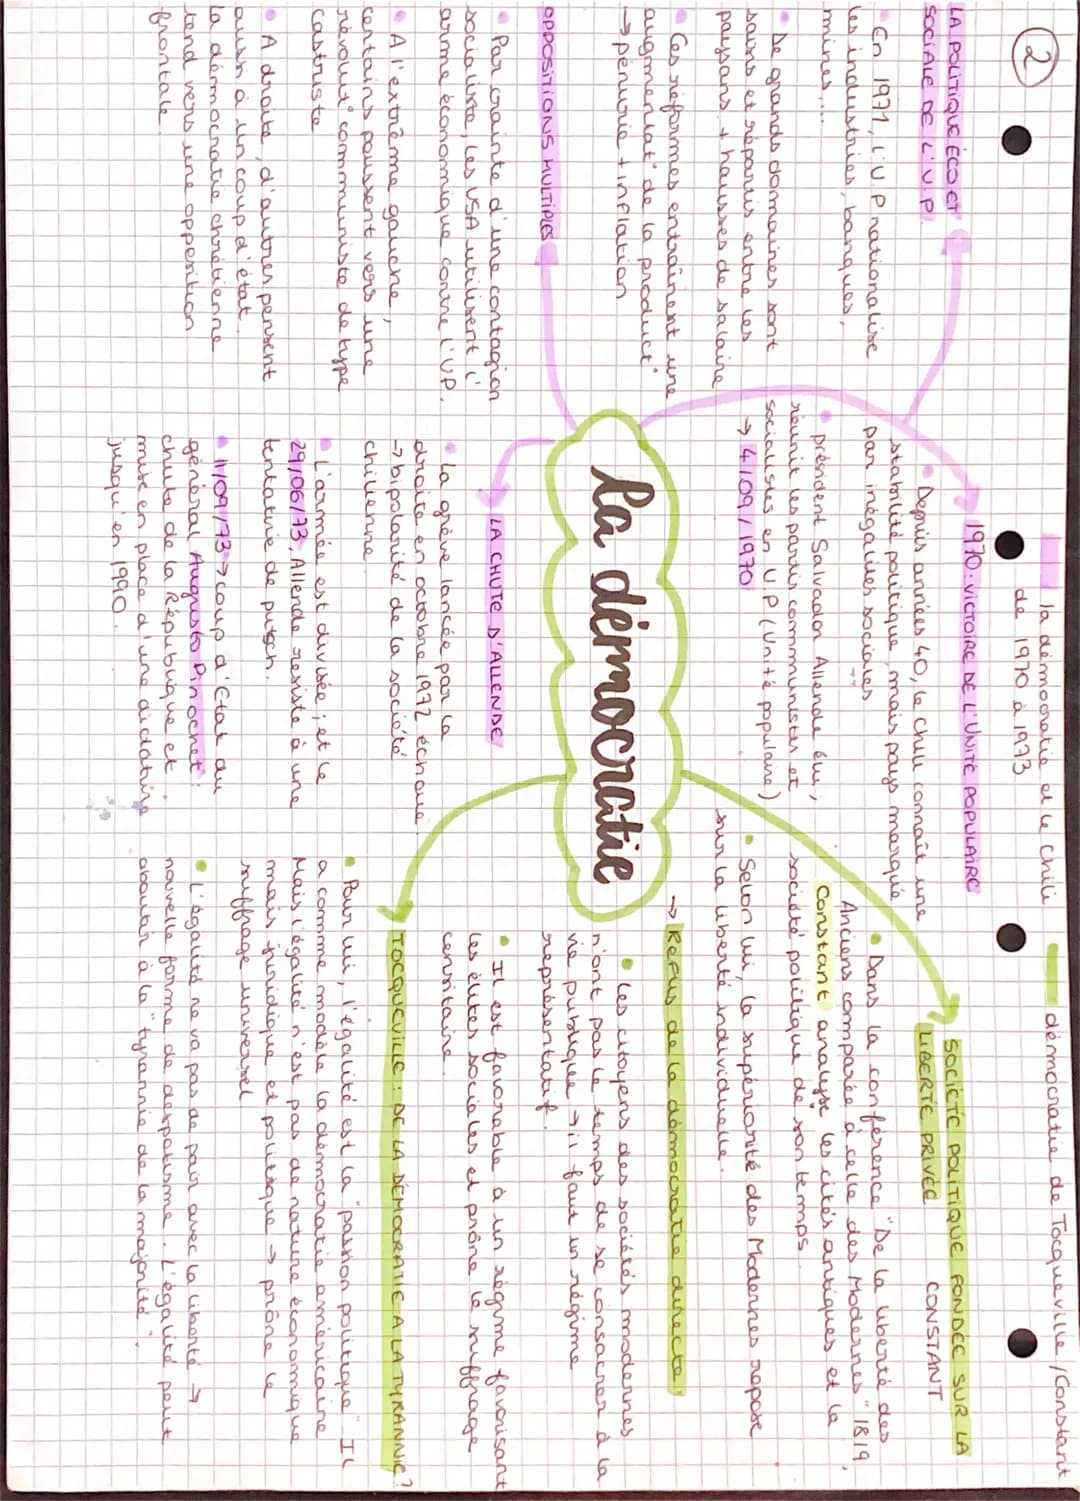 2
la démocratie et le Chili
de 1970 à 1973
démocratie de Tocqueville / Constant
LA POLITIQUE ÉCO ET
SOCIALE DE L'U.P.
• En 1971, l'U.P nationalise
les industries, banques,
mines...
• De grands domaines sont
saisis et répartis entre les
paysans + hausses de salaire
• Ces réformes entraînent une
augmentat° de la product°
→ pénurie + inflation
OPPOSITIONS MULTIPLES
• Par crainte d'une contagion
socialiste, les USA utilisent l'
arme économique contre l'UP.
• A l'extrême gauche,
certains poussent vers une
révolut° communiste de type
castriste
• A droite, d'autres pensent
aussi à un coup d'état.
La démocratie chrétienne
tend vers une opposition
frontale.
1970 : VICTOIRE DE L'UNITÉ POPULAIRE
• Depuis années 40, le Chili connaît une
stabilité politique, mais pays marqué
par inégalités sociales
• président Salvador Allende élu,
réunit les partis communistes et
socialistes en UP (Unité populaire)
→ 4/09/1970
la démocratie
LA CHUTE D'ALLENDE
• La grève lancée par la
droite en octobre 1972 échoue
→ bipolarité de la société
chilienne.
• L'armée est divisée ; et le
29/06/73, Allende résiste à une
tentative de putsch.
• 11/09/73 → coup d'Etat du
général Augusto Pinochet :
chute de la République et
mise en place d'une dictature
jusqu'en 1990.
SOCIÉTÉ POLITIQUE FONDÉE SUR LA
LIBERTÉ PRIVÉE CONSTANT
• Dans la conférence "De la liberté des
Anciens comparée à celle des Modernes" 1819,
Constant analyse les cités antiques et la
société politique de son temps.
• Selon lui, la supériorité des Modernes repose
sur la liberté individuelle.
→ Refus de la démocratie directe :
• Les citoyens des sociétés modernes
n'ont pas le temps de se consacrer à la
vie publique → il faut un régime
représentatif.
• Il est favorable à un régime favorisant
les élites sociales et prône le suffrage
censitaire.
TOCQUEVILLE : DE LA DÉMOCRATIE A LA TYRANNIE ?
• Pour lui, l'égalité est la "passion politique". Il
a comme modèle la démocratie américaine
Mais l'égalité n'est pas de nature économique
mais juridique et politique → prône le
suffrage universel
• L'égalité ne va pas de pair avec la liberté →
nouvelle forme de despotisme. L'égalité peut
aboutir à la "tyrannie de la majorité".